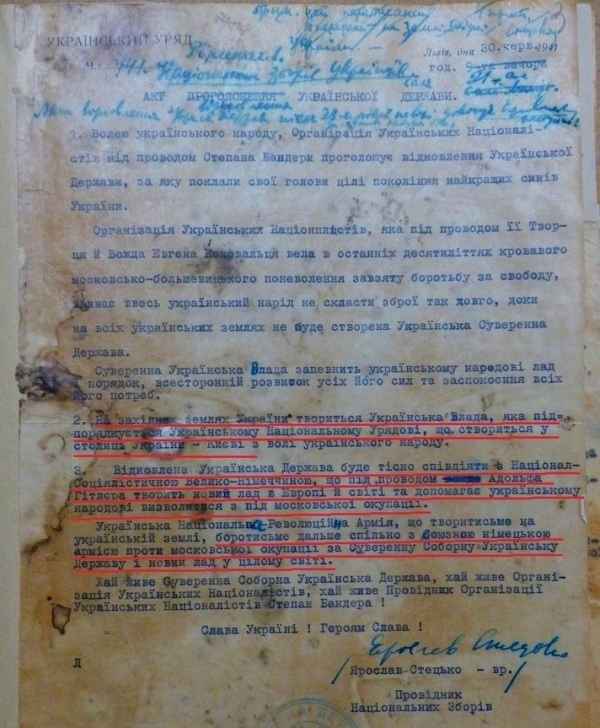 УКРАЇНСЬКИЙ УРЯД
Львів, дня 30.черв.1941
год.
АКТ ПРОГОЛОШЕННЯ УКРАЇНСЬКОЇ ДЕРЖАВИ.
1. Волею українського народу, Організація Українських Націоналі-
стів під проводом Степана Бандери проголошує відновлення Української
Держави, за яку поклали свої голови цілі покоління найкращих синів
України.
Організація Українських Націоналістів, яка під проводом ЇЇ Твор-
ця й Вожда Евгена Коновальця вела в останніх десятиліттях кровавого
московсько-большевицького поневолення завзяту боротьбу за свободу,
взиває ввесь український нарід не скласти зброї так довго, доки
на всіх українських землях не буде створена Українська Суверенна
Держава.
Суверенна Українська Влада запевнить українському народові лад
і порядок, всесторонній розвиток усіх його сил та заспокоєння всіх
його потреб.
2. На західних землях України твориться Українська Влада, яка під-
порядкується Українському Національному Урядові, що створиться у
столиці України - Києві з волі українського народу.
3. Відновлена Українська Держава буде тісно співдіяти з Націонал-
Соціялістичною Велико-Німеччиною, що під проводом Адольфа
Гітлєра творить новий лад в Европі й світі та допомагає українському
народові визволитися з під московської окупації.
Українська Національна Революційна Армія, що творитисьме на
українській землі, боротисьме дальше спільно з Союзною німецькою
армією проти московської окупації за Суверенну Соборну Українську
Державу і новий лад у цілому світі.
Хай живе Суверенна Соборна Українська Держава, хай живе Органі-
зація Українських Націоналістів, хай живе Провідник Організації
Українських Націоналістів Степан Бандера !
Слава Україні ! Героям Слава !
/Ярослав Стецько - вр./
Д
Провідник
Національних Зборів